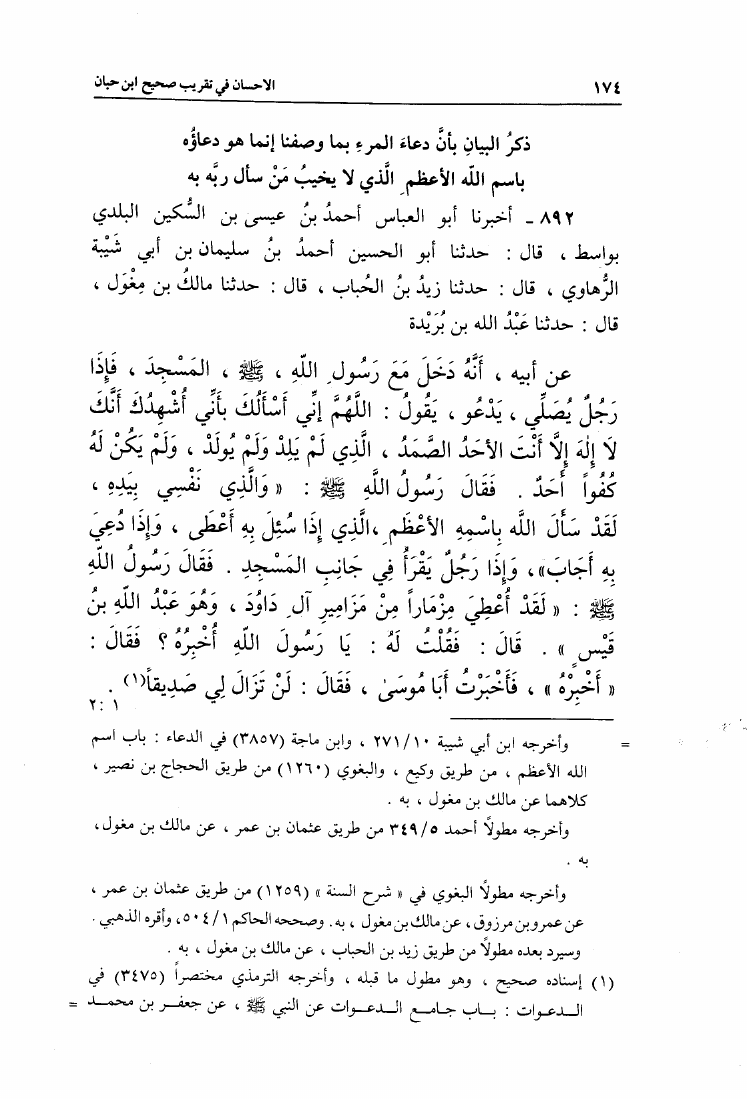 ١٧٤ الاحسان في تقريب صحيح ابن حبان
ذكرُ البيانِ بأنَّ دعاءَ المرءِ بما وصفنا إنما هو دعاؤُه
باسمِ اللّه الأعظمِ الَّذي لا يخيبُ مَنْ سأل ربَّه به
٨٩٢ ـ أخبرنا أبو العباس أحمدُ بنُ عيسى بن السُّكين البلدي
بواسط ، قال : حدثنا أبو الحسين أحمدُ بنُ سليمان بن أبي شَيْبة
الرُّهاوي ، قال : حدثنا زيدُ بنُ الحُباب ، قال : حدثنا مالكُ بن مِغْوَل ،
قال : حدثنا عَبْدُ الله بن بُرَيْدة
عن أبيه ، أَنَّهُ دَخَلَ مَعَ رَسُولِ اللّهِ ، ﷺ ، المَسْجِدَ ، فَإِذَا
رَجُلٌ يُصَلِّي ، يَدْعُو ، يَقُولُ : اللَّهُمَّ إِنِّي أَسْأَلُكَ بأَنِّي أُشْهِدُكَ أَنَّكَ
لَا إِلٰهَ إِلَّا أَنْتَ الأَحَدُ الصَّمَدُ ، الَّذِي لَمْ يَلِدْ وَلَمْ يُولَدْ ، وَلَمْ يَكُنْ لَهُ
كُفُواً أَحَدٌ . فَقَالَ رَسُولُ اللَّهِ ﷺ : « وَالَّذِي نَفْسِي بِيَدِهِ ،
لَقَدْ سَأَلَ اللَّه بِاسْمِهِ الأَعْظَمِ ،الَّذِي إِذَا سُئِلَ بِهِ أَعْطَى ، وَإِذَا دُعِيَ
بِهِ أَجَابَ»، وَإِذَا رَجُلٌ يَقْرَأُ فِي جَانِبِ المَسْجِدِ . فَقَالَ رَسُولُ اللَّهِ
ﷺ : « لَقَدْ أُعْطِيَ مِزْمَاراً مِنْ مَزَامِيرِ آلِ دَاوُدَ ، وَهُوَ عَبْدُ اللَّهِ بنُ
قَيْسٍ » . قَالَ : فَقُلْتُ لَهُ : يَا رَسُولَ اللّهِ أُخْبِرُهُ ؟ فَقَالَ :
« أَخْبِرْهُ » ، فَأَخْبَرْتُ أَبَا مُوسَىٰ ، فَقَالَ : لَنْ تَزَالَ لِي صَدِيقاً(١) .
٢:١
= وأخرجه ابن أبي شيبة ٢٧١/١٠ ، وابن ماجة (٣٨٥٧) في الدعاء : باب اسم
الله الأعظم ، من طريق وكيع ، والبغوي (١٢٦٠) من طريق الحجاج بن نصير ،
كلاهما عن مالك بن مغول ، به .
وأخرجه مطولًا أحمد ٣٤٩/٥ من طريق عثمان بن عمر ، عن مالك بن مغول،
به .
وأخرجه مطولًا البغوي في « شرح السنة » (١٢٥٩) من طريق عثمان بن عمر ،
عن عمرو بن مرزوق، عن مالك بن مغول ، به. وصححه الحاكم ٥٠٤/١، وأقره الذهبي.
وسيرد بعده مطولًا من طريق زيد بن الحباب ، عن مالك بن مغول ، به .
(١) إسناده صحيح ، وهو مطول ما قبله ، وأخرجه الترمذي مختصراً (٣٤٧٥) في
الدعوات : باب جامع الدعوات عن النبي ﷺ ، عن جعفر بن محمد =